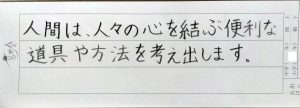 人間は、人々の心を結ぶ便利な
道具や方法を考え出します。